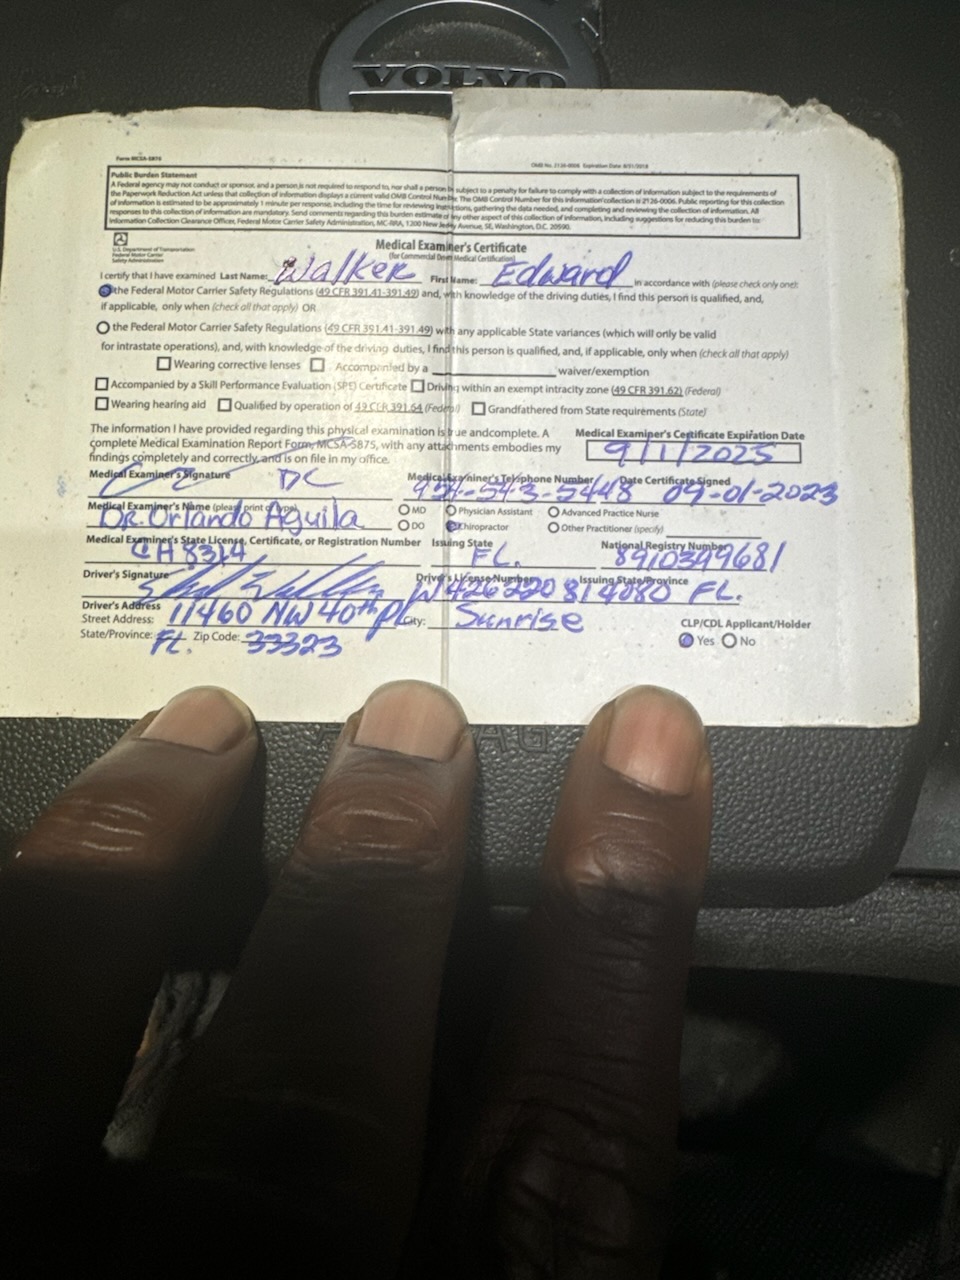 VOLVO
Form MCSA-5876 OMB No. 2126-0006 Expiration Date: 8/31/2018
Public Burden Statement
A Federal agency may not conduct or sponsor, and a person is not required to respond to, nor shall a person be subject to a penalty for failure to comply with a collection of information subject to the requirements of
the Paperwork Reduction Act unless that collection of information displays a current valid OMB Control Number. The OMB Control Number for this information collection is 2126-0006. Public reporting for this collection
of information is estimated to be approximately 1 minute per response, including the time for reviewing instructions, gathering the data needed, and completing and reviewing the collection of information. All
responses to this collection of information are mandatory. Send comments regarding this burden estimate or any other aspect of this collection of information, including suggestions for reducing this burden to:
Information Collection Clearance Officer, Federal Motor Carrier Safety Administration, MC-RRA, 1200 New Jersey Avenue, SE, Washington, D.C. 20590.
U.S. Department of Transportation
Federal Motor Carrier
Safety Administration
Medical Examiner's Certificate
(for Commercial Driver Medical Certification)
I certify that I have examined Last Name: Walker First Name: Edward in accordance with (please check only one):
the Federal Motor Carrier Safety Regulations (49 CFR 391.41-391.49) and, with knowledge of the driving duties, I find this person is qualified, and,
if applicable, only when (check all that apply) OR
the Federal Motor Carrier Safety Regulations (49 CFR 391.41-391.49) with any applicable State variances (which will only be valid
for intrastate operations), and, with knowledge of the driving duties, I find this person is qualified, and, if applicable, only when (check all that apply)
Wearing corrective lenses Accompanied by a waiver/exemption
Accompanied by a Skill Performance Evaluation (SPE) Certificate Driving within an exempt intracity zone (49 CFR 391.62) (Federal)
Wearing hearing aid Qualified by operation of 49 CFR 391.64 (Federal) Grandfathered from State requirements (State)
The information I have provided regarding this physical examination is true andcomplete. A
complete Medical Examination Report Form, MCSA-5875, with any attachments embodies my
findings completely and correctly, and is on file in my office.
Medical Examiner's Certificate Expiration Date
9/1/2025
Medical Examiner's Signature DC Medical Examiner's Telephone Number Date Certificate Signed
954-543-5448 09-01-2023
Medical Examiner's Name (please print or type) MD Physician Assistant Advanced Practice Nurse
DR. Orlando Aguila DO Chiropractor Other Practitioner (specify)
Medical Examiner's State License, Certificate, or Registration Number Issuing State National Registry Number
CH8314 FL. 8910349681
Driver's Signature Driver's License Number Issuing State/Province
W426220814080 FL.
Driver's Address
Street Address: 11460 NW 40th pl City: Sunrise CLP/CDL Applicant/Holder
State/Province: FL. Zip Code: 33323 Yes No